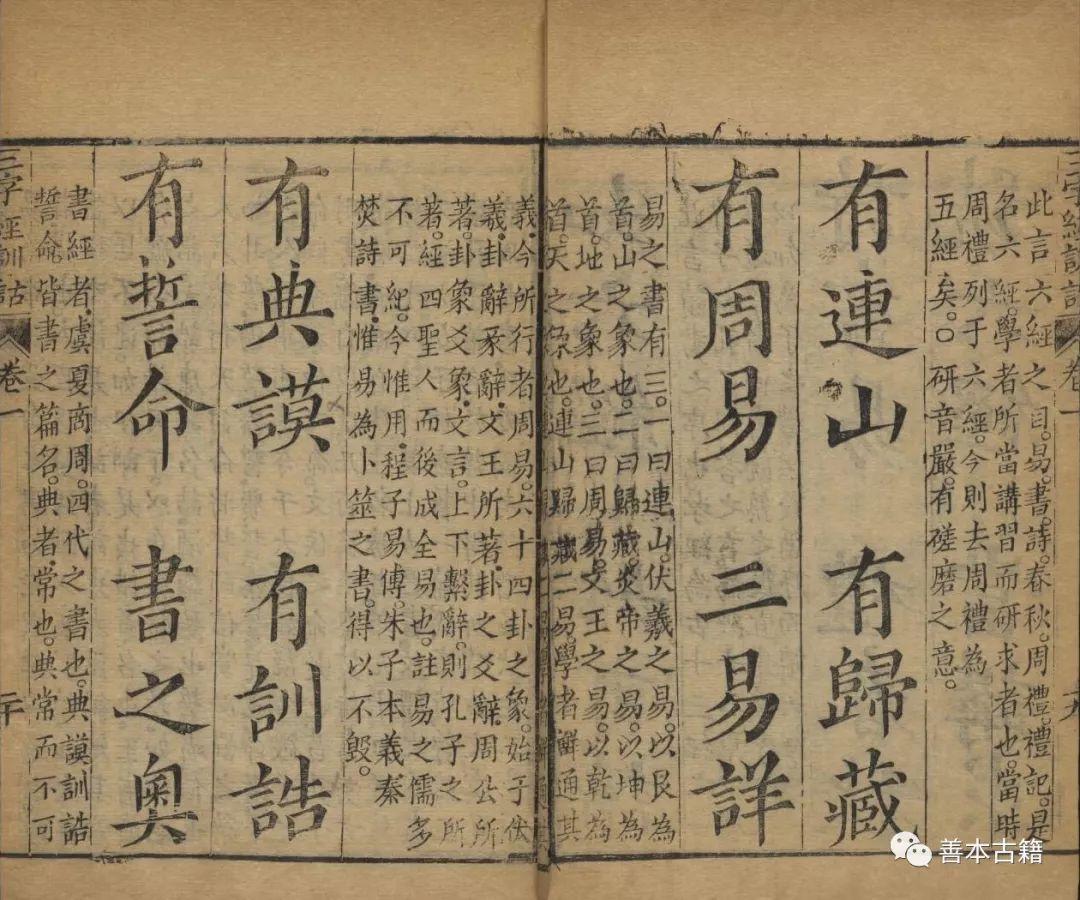 三字經訓詁
卷一
此言六經之目易書詩春秋周禮禮記是
名六經學者所當講習而研求者也當時
周禮列于六經今則去周禮為
五經矣〇研音嚴有磋磨之意
有連山 有歸藏
有周易 三易詳
易之書有三一曰連山伏羲之易以艮為
首山之象也二曰歸藏炎帝之易以坤為
首地之象也三曰周易文王之易以乾為
首天之象也連山歸藏二易學者鮮通其
義今所行者周易六十四卦之象始于伏
羲卦辭彖辭文王所著卦之爻辭周公所
著卦象爻象文言上下繫辭則孔子之所
著經四聖人而後成全易也註易之儒多
不可紀今惟用程子易傳朱子本義秦
焚詩書惟易為卜筮之書得以不毀
有典謨 有訓誥
有誓命 書之奧
書經者虞夏商周四代之書也典謨訓誥
誓命皆書之篇名典者常也典常而不可
三字經訓詁
卷一
二十
善本古籍